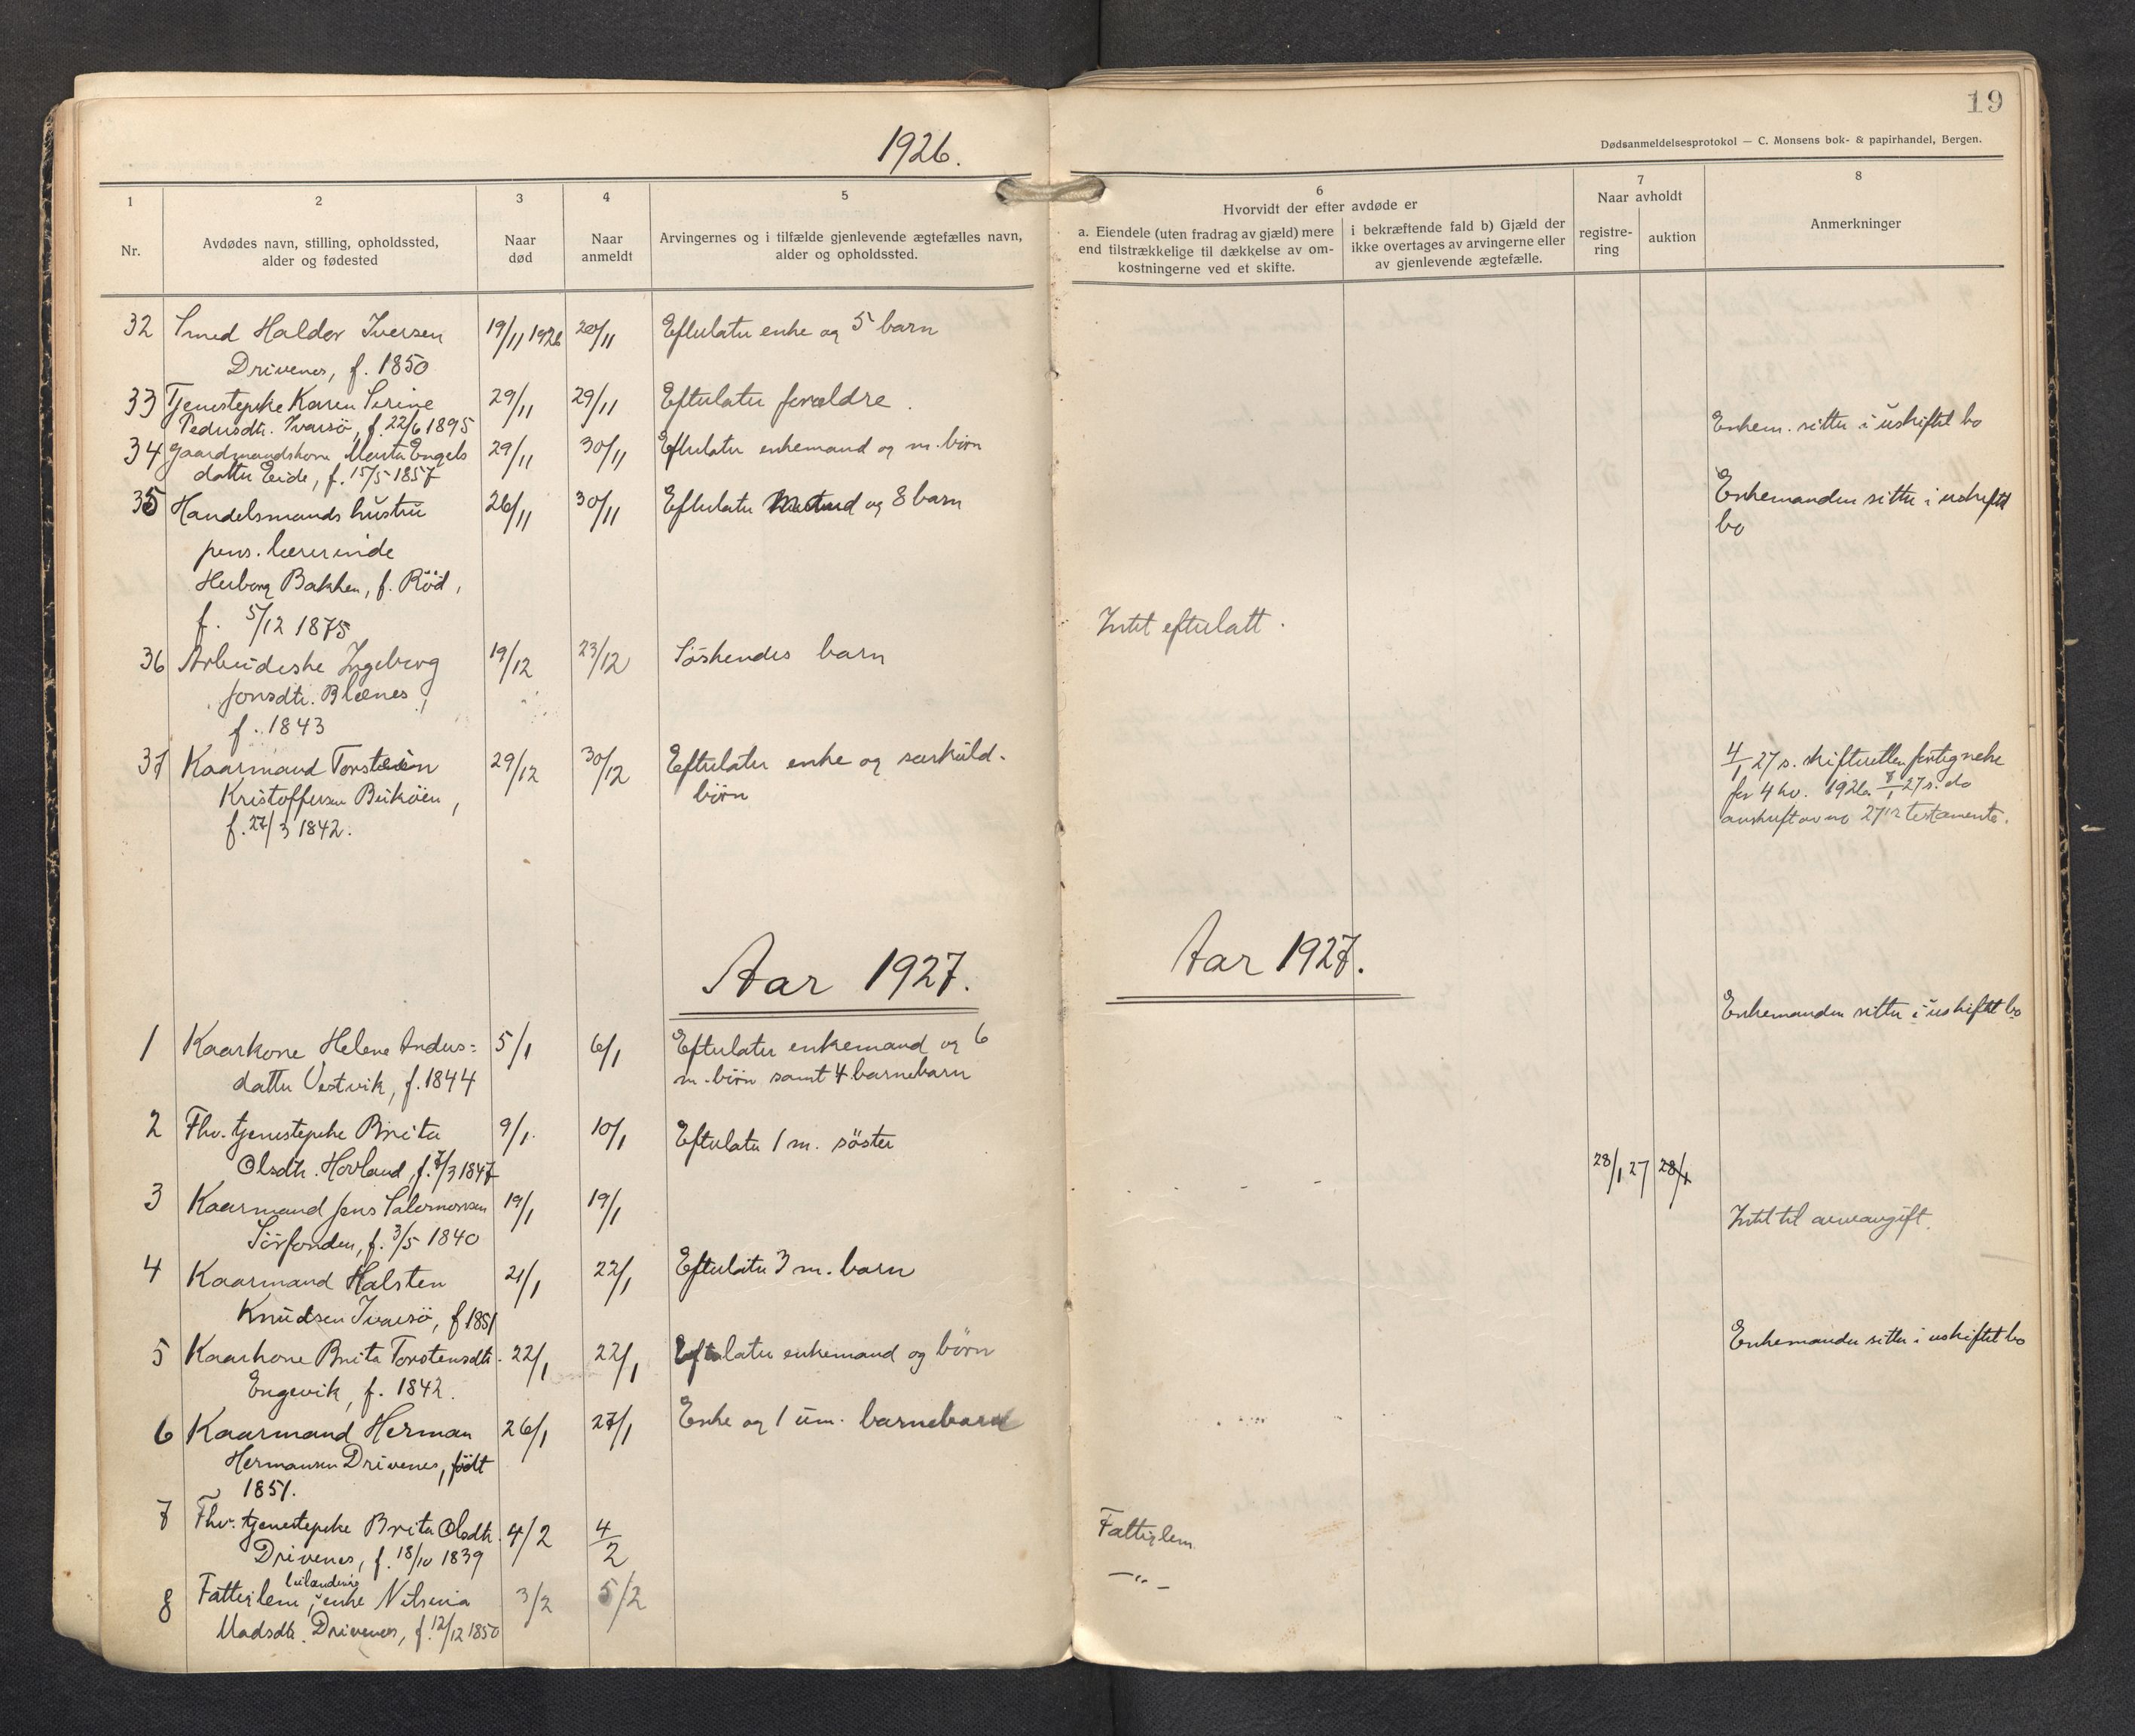 1926.
1
Nr.
2
Avdødes navn, stilling, opholdssted,
alder og fødested
3
Naar
død
4
Naar
anmeldt
5
Arvingernes og i tilfælde gjenlevende ægtefælles navn,
alder og opholdssted.
32 Smed Haldor Iversen 19/11 1926 20/11 Efterlater enke og 5 barn
Drivenes, f. 1850
33 Tjenestepike Karen Serine 29/11 29/11 Efterlater forældre.
Pedersdtr. Ivarsö, f. 22/6 1895
34 Gaardmandskone Marta Engels 29/11 30/11 Efterlater enkemand og m. börn
datter Eide, f. 15/5 1857
35 Handelsmands hustru 26/11 30/11 Efterlater og 8 barn
pens. lærerinde
Herborg Bakken, f. Röd,
f. 5/12 1875
36 Arbeideske Ingeborg 19/12 23/12 Söskendes barn
Jonsdtr. Blænes,
f. 1843
37 Kaarmand Torstein 29/12 30/12 Efterlater enke og særkuld-
börn
Kristoffersen
f. 27/3 1842.
Aar 1927.
1 Kaarkone Helene Anders= 5/1 6/1 Efterlater enkemand og 6
datter Vestvik, f. 1844 m. börn samt 4 barnebarn
2 Fhv. tjenestepike Brita 9/1. 10/1 Efterlater 1 m. söster
Olsdtr. Hovland, f. 7/3 1847
3 Kaarmand Jens Salomonsen 19/1 19/1
Sörfonden, f. 3/5 1840
4 Kaarmand Halsten 21/1 22/1 Efterlater 3 m. barn
Knudsen Ivarsö, f 1851
5 Kaarkone Brita Torstensdtr. 22/1 22/1 Efterlater enkemand og börn
Engevik, f. 1842.
6 Kaarmand Herman 26/1 27/1 Enke og 1 um. barnebarn
Hermansen Drivenes, födt
1851.
7 Fhv. tjenestepike Brita Olsdtr. 4/2 4/2
Drivenes, f. 18/10 1839
8 Fattiglem, leilændings enke Nilsina 3/2 5/2
Madsdtr. Drivenes, f. 12/12 1850
19
Dødsanmeldelsesprotokol — C. Monsens bok- & papirhandel, Bergen.
6
Hvorvidt der efter avdøde er
a. Eiendele (uten fradrag av gjæld) mere
end tilstrækkelige til dækkelse av om-
kostningerne ved et skifte.
i bekræftende fald b) Gjæld der
ikke overtages av arvingerne eller
av gjenlevende ægtefælle.
7
Naar avholdt
registre-
ring
auktion
8
Anmerkninger
Enkem. sitter i uskiftet bo
Enkemanden sitter i uskiftet
bo
Intet efterlatt.
4/1 27 s. skifteretten fortegnelse
for 4 kv. 1926. 8/1 27 s. do
avskrift av no 27's testamente.
Aar 1927.
Enkemanden sitter i uskiftet bo
28/1 27 28/1
Intet til arveavgift.
Enkemanden sitter i uskiftet bo
Fattiglem
—"—